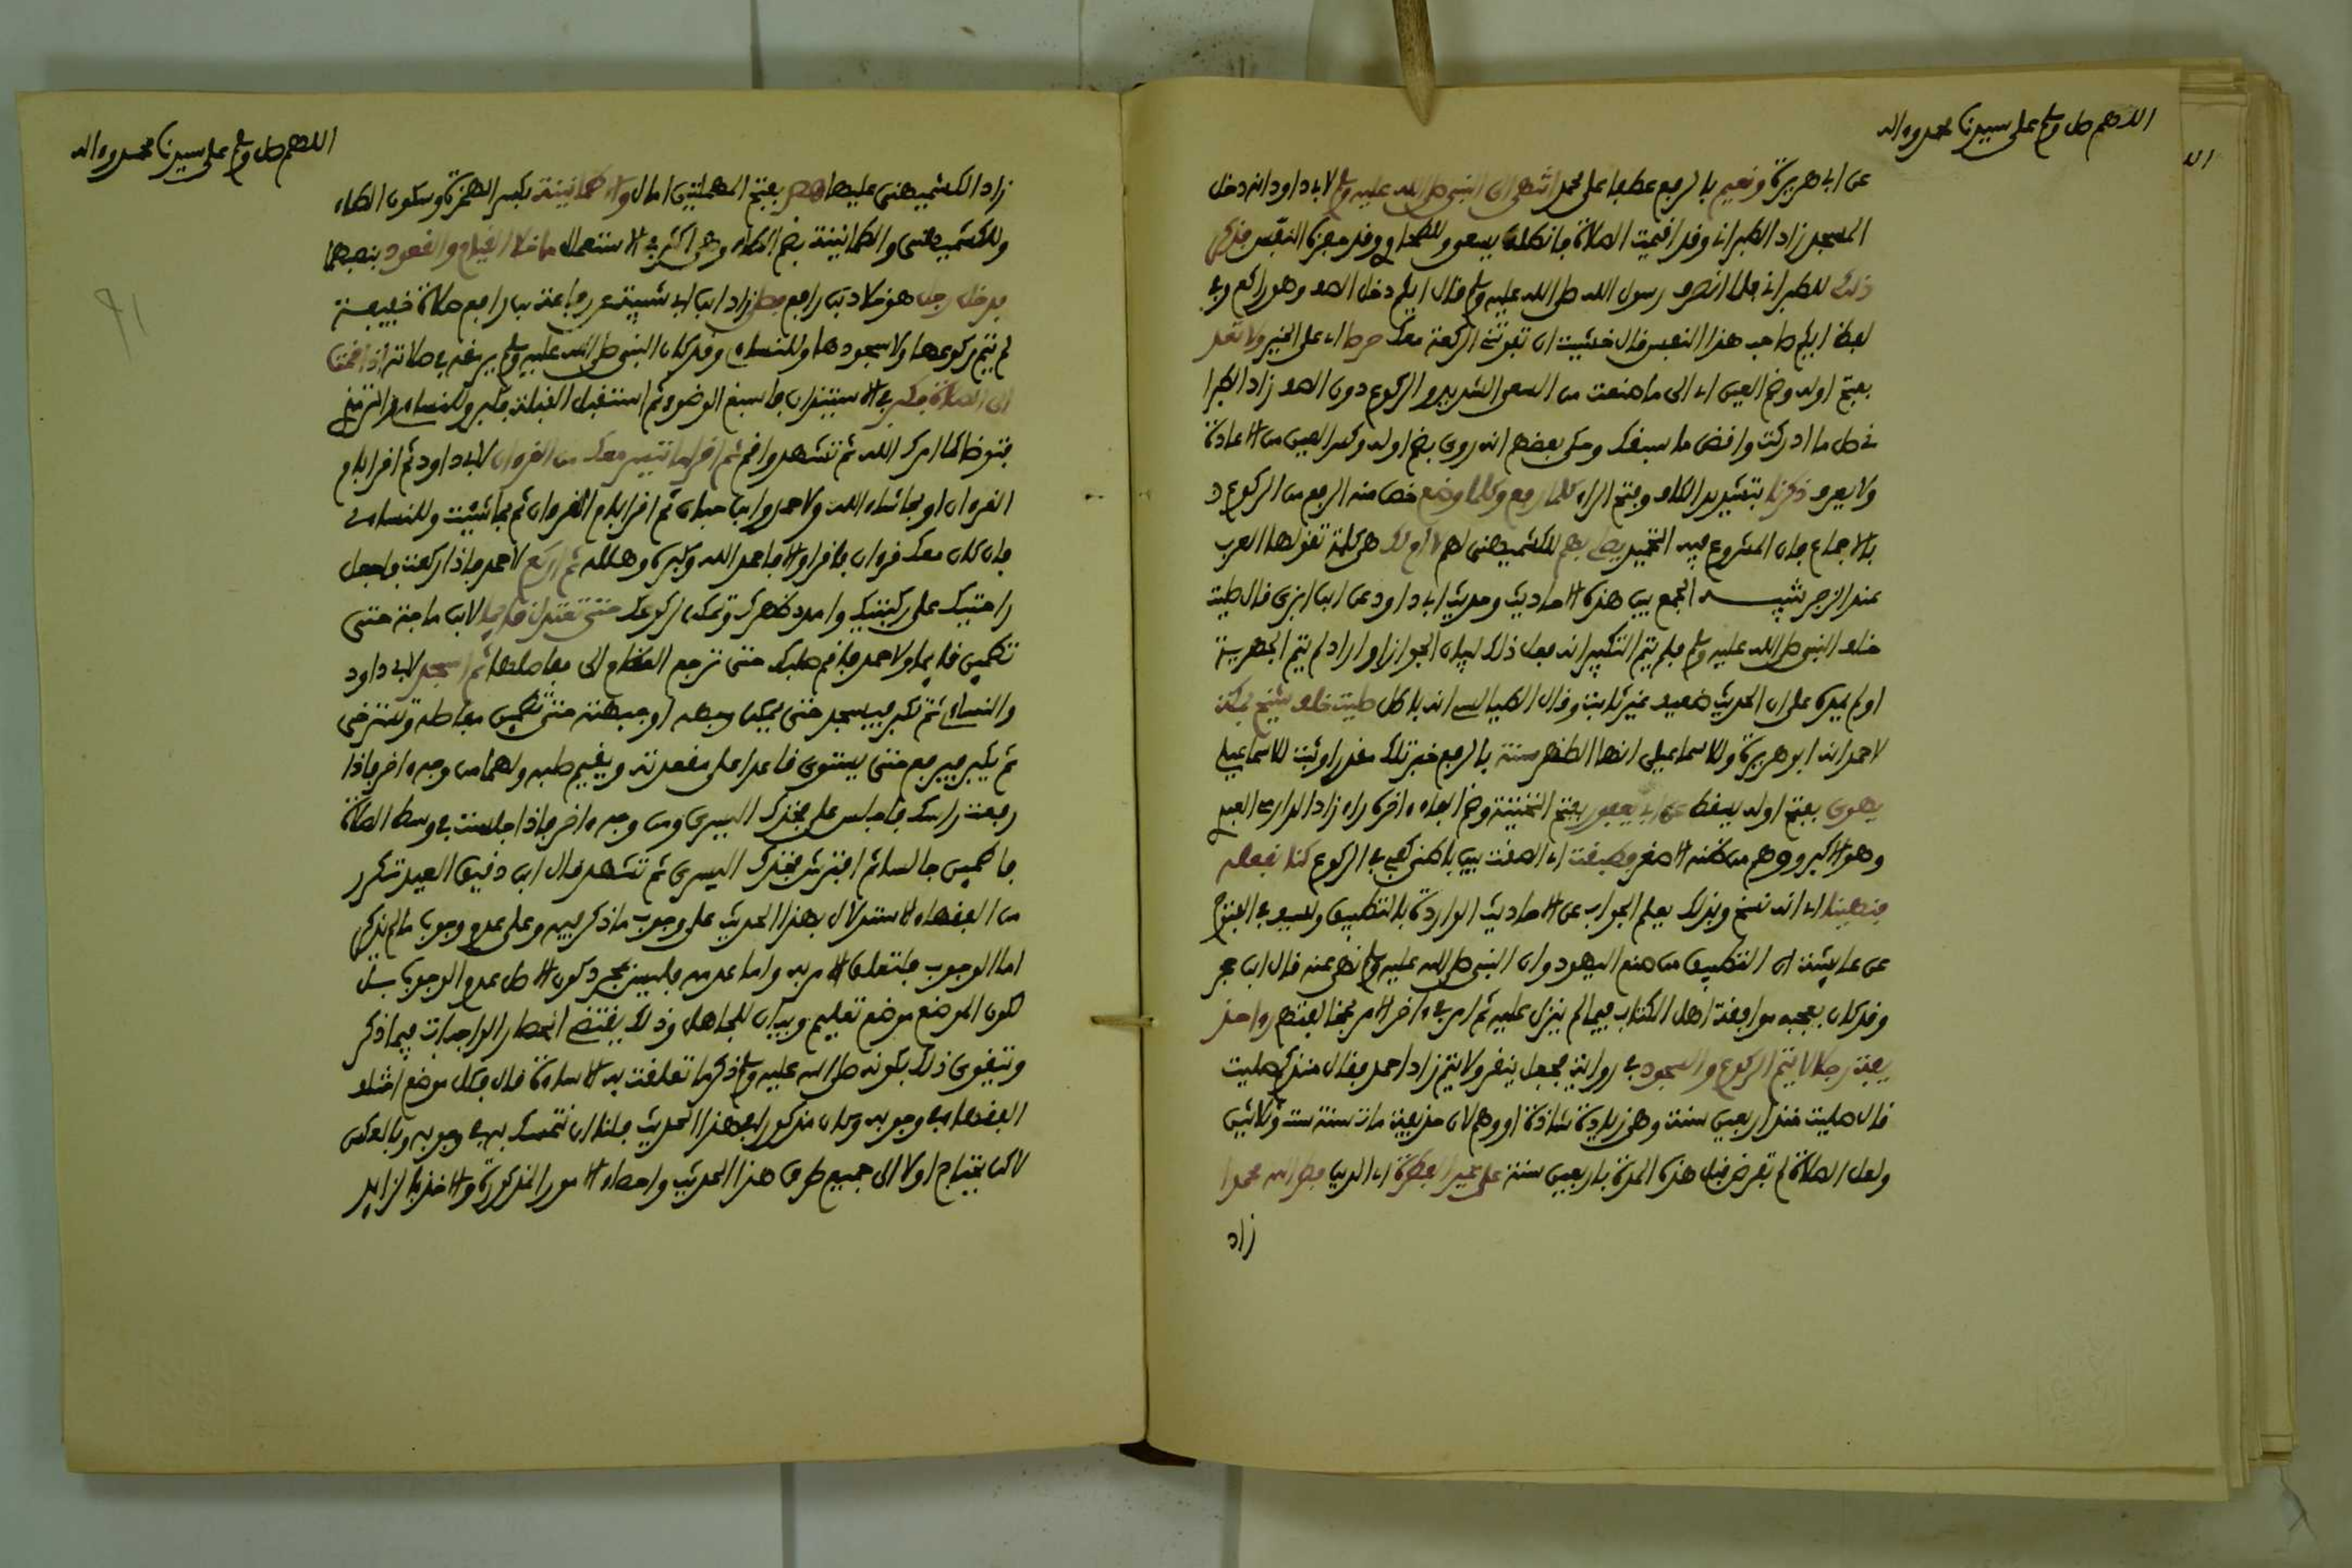 اللهم صل وسلم على سيدنا محمد وءاله
عن ابى هريرة ونعيم بالرفع عطفا على محمد انتهى الى النبى صلى الله عليه وسلم لابى داود انه دخل
المسجد زاد الطبرانى وقد اقيمت الصلاة فانطلق يسعى وللطحاوى وقد حفزه النفس فذكر
ذلك للطبرانى فلما انصرف رسول الله صلى الله عليه وسلم قال ايكم دخل الصف وهو راكع وفى
لفظ ايكم صاحب هذا النفس قال خشيت ان تفوتنى الركعة معك حرصا اى على الخير ولا تعد
بفتح اوله وضم العين اى الى ما صنعت من السعى الشديد والركوع دون الصف زاد الطبرا
نى صل ما ادركت واقض ما سبقك وحكى بعضهم انه روى بضم اوله وكسر العين من الاعادة
ولا يعرف ذكرنا بتشديد الكاف وفتح الراء كلما رفع وكلما وضع خص منه الرفع من الركوع
بالاجماع فان المشروع فيه التحميد يصلى بهم للكشميهنى لهم لا ام لك هى كلمة تقولها العرب
عند الزجر تنبيه الجمع بين هذه الاحاديث وحديث ابى داود عن ابن ابزى قال صليت
خلف النبى صلى الله عليه وسلم فلم يتم التكبير انه فعل ذلك لبيان الجواز او اراد لم يتم الجهر به
او لم يمده على ان الحديث ضعيف غير ثابت وقال الطيالسى انه باطل صليت خلف شيخ بمكة
لاحمد انه ابو هريرة وللاسماعيلى انها الظهر سنة بالرفع خبر تلك مقدرا وثبت للاسماعيلى
يهوى بفتح اوله يسقط عن ابى يعفور بفتح التحتية وضم الفاء ءاخره راء زاد الدارمى العبدى
وهو الاكبر ووهم من ظنه الاصغر وطبقت اى الصقت بين باطنى كفى فى الركوع كنا نفعله
فنهينا اى انه نسخ وبذلك يعلم الجواب عن الاحاديث الواردة بالتطبيق ولسيف فى الفتوح
عن عايشة ان التطبيق من صنع اليهود وان النبى صلى الله عليه وسلم نهى عنه قال ابن حجر
وقد كان يعجبه موافقة اهل الكتاب فيما لم ينزل عليه ثم امر فى ءاخر الامر بمخالفتهم رءا حذيفة
يفة رجلا لا يتم الركوع والسجود فى رواية فجعل ينقر ولا يتم زاد احمد فقال منذ كم صليت
قال صليت منذ اربعين سنة وهى زيادة شاذة او وهم لان حذيفة مات سنة ست وثلاثين
ولعل الصلاة لم تفرض قبل هذه المدة باربعين سنة على غير الفطرة اى الدين فطر الله محمدا
زاد
اللهم صل وسلم على سيدنا محمد وءاله
زاد الكشميهنى عليها هصر بفتح المهملتين امال واطمانينة بكسر الهمزة وسكون الطاء
وللكشميهنى والطمانينة بضم الطاء وهى اكثر فى الاستعمال ما خلا القيام والقعود بنصبهما
فدخل رجل هو خلاد بن رافع فصلى زاد ابن ابى شيبة عن رفاعة بن رافع صلاة خفيفة
لم يتم ركوعها ولا سجودها وللنساءى وقد كان النبى صلى الله عليه وسلم يرمقه فى صلاته اذا قمت
الى الصلاة فكبر فى الاستيذان فاسبغ الوضوء ثم استقبل القبلة فكبر وللنساءى والترمذى
فتوضا كما امرك الله ثم تشهد واقم ثم اقرا ما تيسر معك من القرءان لابى داود ثم اقرا بام
القرءان او بما شاء الله ولاحمد وابن حبان ثم اقرا بام القرءان ثم بما شيت وللنساءى
فان كان معك قرءان فاقرا والا فاحمد الله وكبره وهلله ثم اركع لاحمد فاذا ركعت فاجعل
راحتيك على ركبتيك وامدد ظهرك وتمكن لركوعك حتى تعتدل قايما لابن ماجة حتى
تطمين قايما ولاحمد فاقم صلبك حتى ترجع العظام الى مفاصلها ثم اسجد لابى داود
والنساءى ثم تكبر فيسجد حتى يمكن وجهه او جبهته حتى تطمين مفاصله وتسترخى
ثم يكبر فيرفع حتى يستوى قاعدا على مقعدته ويقيم صلبه ولهما من وجه ءاخر فاذا
رفعت راسك فاجلس على فخذك اليسرى ومن وجه ءاخر فاذا جلست فى وسط الصلاة
فاطمين جالسا ثم افترش فخذك اليسرى ثم تشهد قال ابن دقيق العيد تكرر
من الفقهاء الاستدلال بهذا الحديث على وجوب ما ذكر فيه وعلى عدم وجوب ما لم يذكر
اما الوجوب فلتعلق الامر به واما عدمه فليس بمجرد كون الاصل عدم الوجوب بل
لكون الموضع موضع تعليم وبيان للجاهل وذلك يقتضى انحصار الواجبات فيما ذكر
ويتقوى ذلك بكونه صلى الله عليه وسلم ذكر ما تعلقت به الاساءة قال فكل موضع اختلف
الفقهاء فى وجوبه وكان مذكورا فى هذا الحديث فلنا ان نتمسك به فى وجوبه وبالعكس
لاكن يحتاج اولا الى جميع طرق هذا الحديث واحصاء الامور المذكورة والاخذ بالزايد